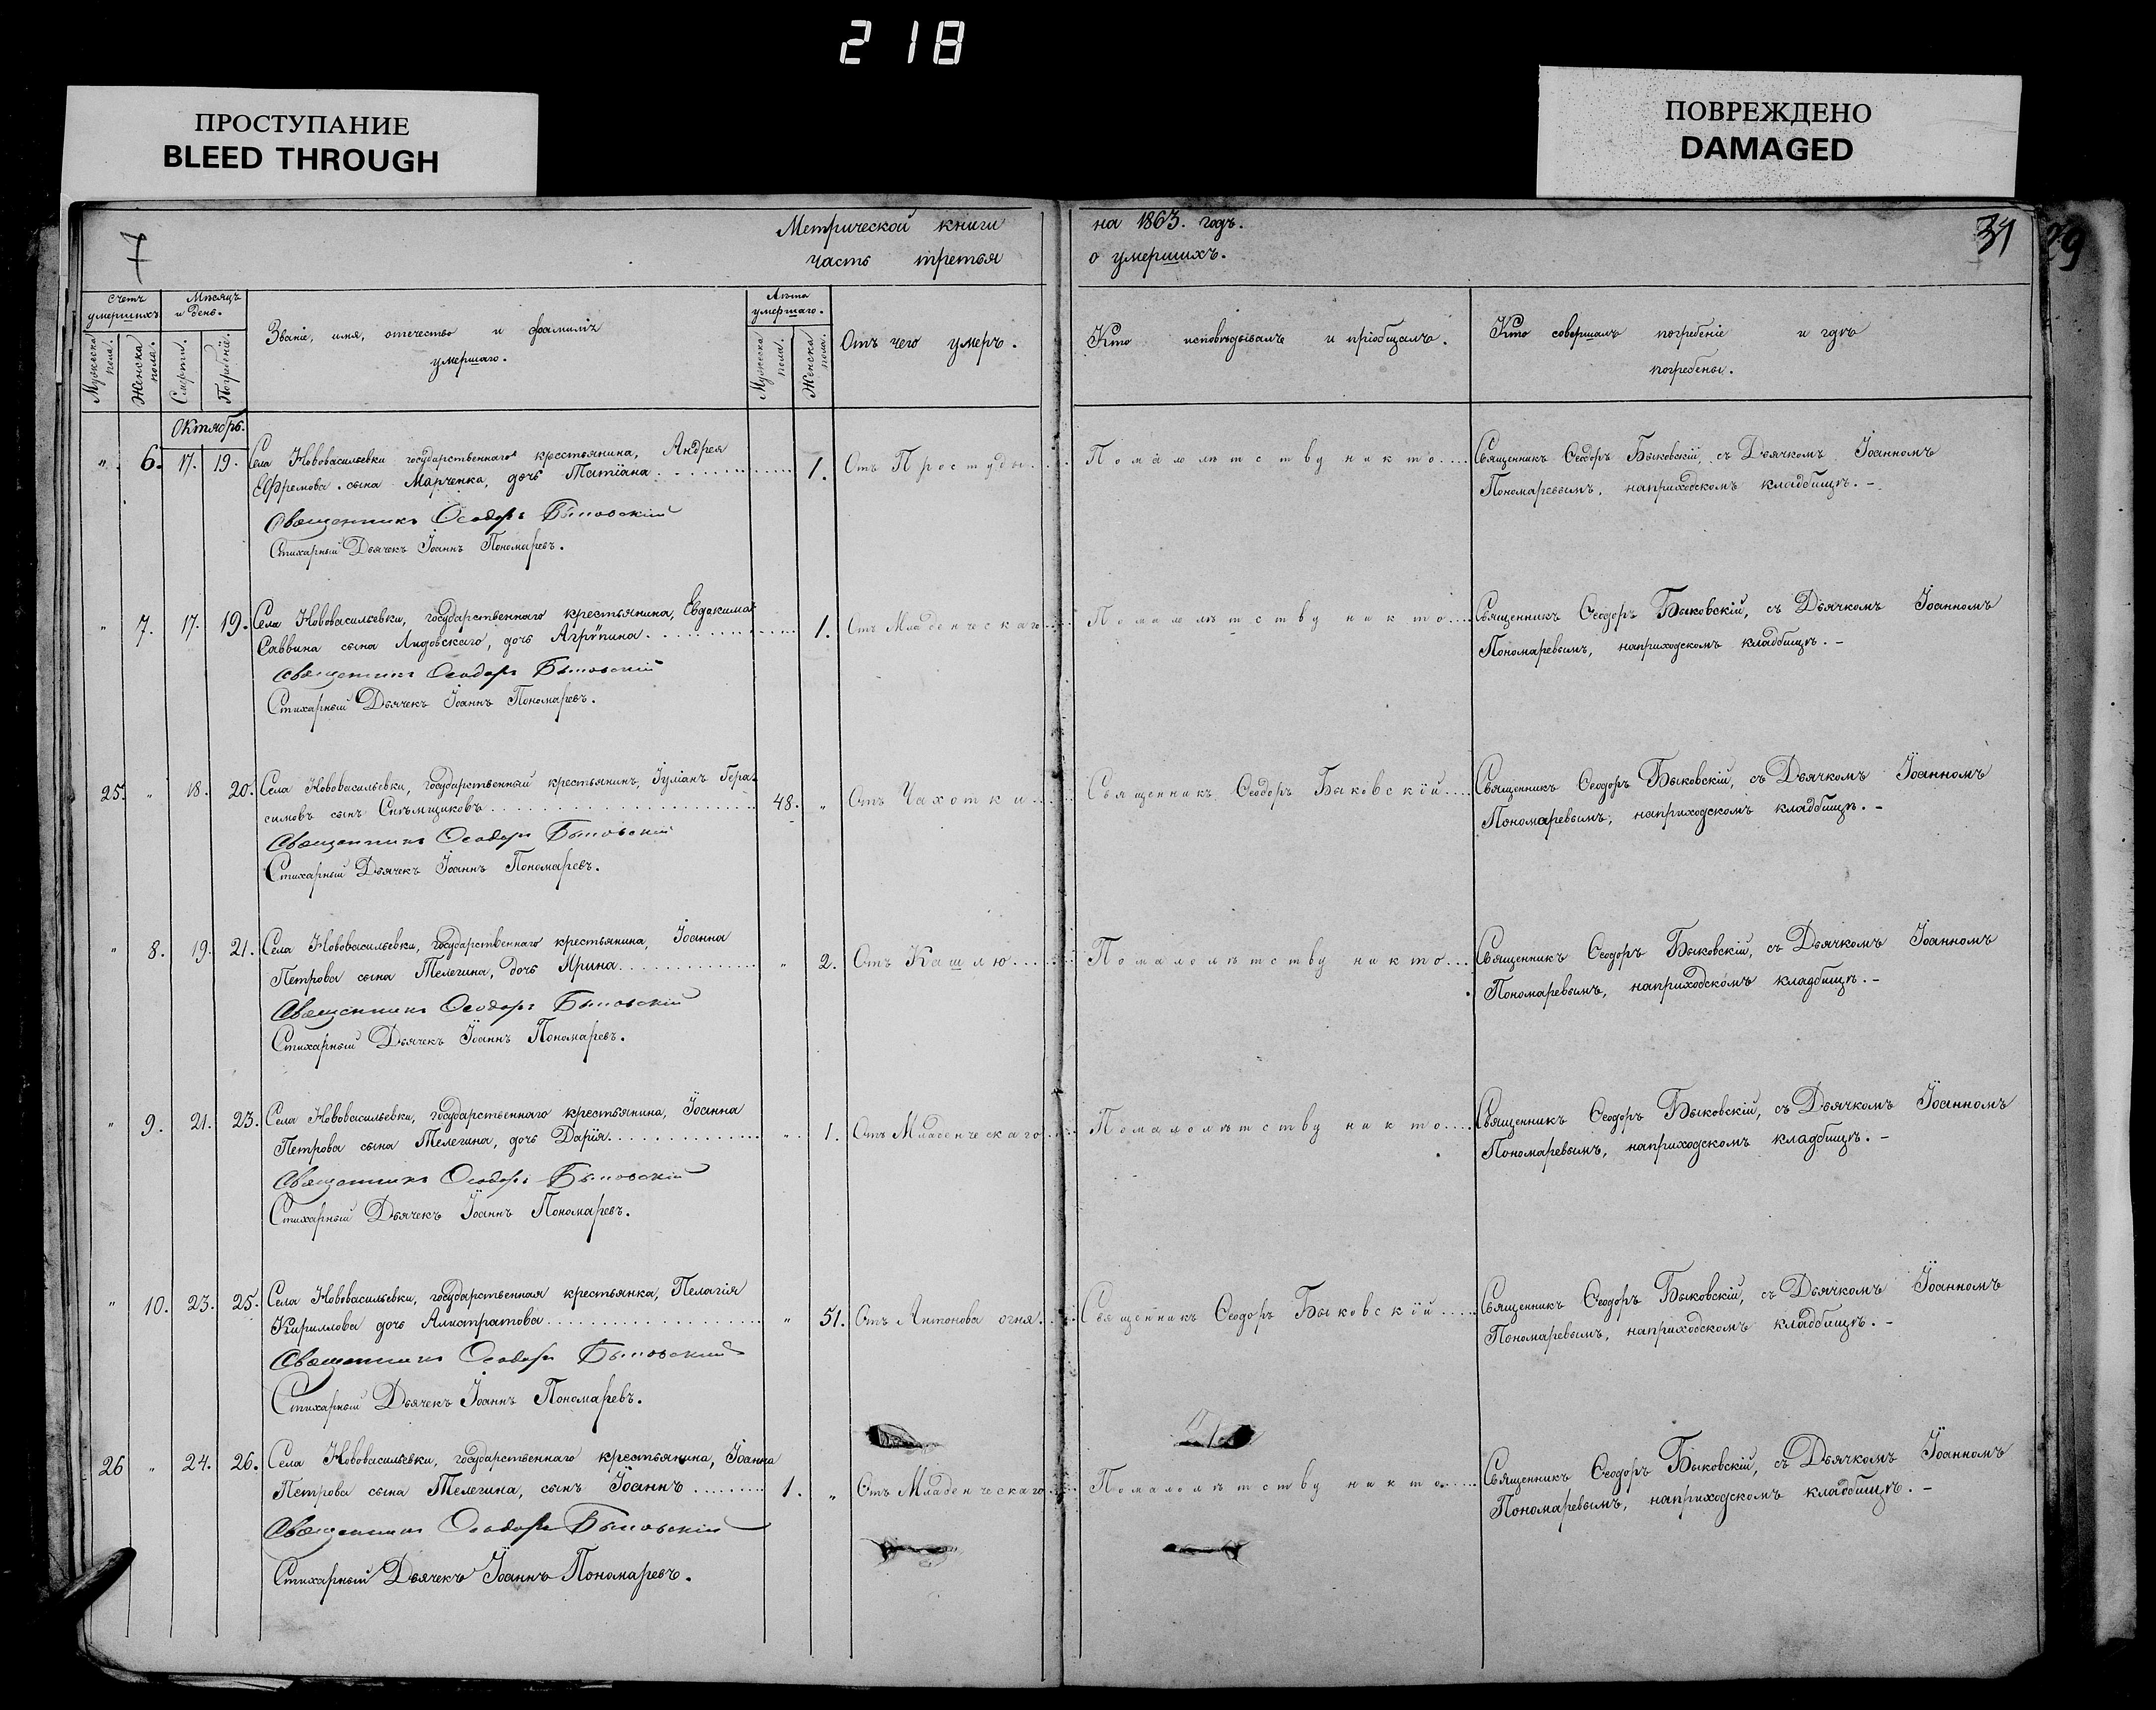 218
ПРОСТУПАНИЕ
BLEED THROUGH
ПОВРЕЖДЕНО
DAMAGED
7
Метрической книги
часть третья
на 1863. годъ.
о умершихъ.
31
29
Счетъ умершихъ
Мѣсяцъ и день.
Званіе, имя, отечество и фамилія
умершаго.
Лѣта умершаго.
Отъ чего умеръ.
Кто исповѣдывалъ и пріобщалъ.
Кто совершалъ погребеніе и гдѣ
погребены.
Мужеска пола.
Женска пола.
Смерти.
Погребенiе.
Мужеска пола.
Женска пола.
Октябрь.
" 6. 17. 19. Села Нововасильевки государственнаго крестьянина, Андрея
Ефремова сына Марченка, дочь Татіана 1. Отъ Простуды Помалолѣтству никто Священникъ Ѳеодоръ Быковскій, съ Дьячкомъ Іоанномъ
Пономаревымъ, наприходскомъ кладбищѣ. –
Священникъ Ѳеодоръ Быковскій
Стихарный Дьячекъ Іоаннъ Пономаревъ.
" 7. 17. 19. Села Нововасильевки, государственнаго крестьянина, Евдокима
Саввина сына Лидовскаго, дочь Агрѵпина 1. Отъ Младенческаго Помалолѣтству никто Священникъ Ѳеодоръ Быковскій, съ Дьячкомъ Іоанномъ
Пономаревымъ, наприходскомъ кладбищѣ. –
Священникъ Ѳеодоръ Быковскій
Стихарный Дьячекъ Іоаннъ Пономаревъ.
25. " 18. 20. Села Нововасильевки, государственный крестьянинъ, Іуліанъ Гера-
симовъ сынъ Снѣмщиковъ 48. " Отъ Чахотки Священникъ Ѳеодоръ Быковскій Священникъ Ѳеодоръ Быковскій, съ Дьячкомъ Іоанномъ
Пономаревымъ, наприходскомъ кладбищѣ. –
Священникъ Ѳеодоръ Быковскій
Стихарный Дьячекъ Іоаннъ Пономаревъ.
" 8. 19. 21. Села Нововасильевки, государственнаго крестьянина, Іоанна
Петрова сына Телегина, дочь Ирина " 2. Отъ Кашлю Помалолѣтству никто Священникъ Ѳеодоръ Быковскій, съ Дьячкомъ Іоанномъ
Пономаревымъ, наприходскомъ кладбищѣ. –
Священникъ Ѳеодоръ Быковскій
Стихарный Дьячекъ Іоаннъ Пономаревъ.
" 9. 21. 23. Села Нововасильевки, государственнаго крестьянина, Іоанна
Петрова сына Телегина, дочь Дарія " 1. Отъ Младенческаго Помалолѣтству никто Священникъ Ѳеодоръ Быковскій, съ Дьячкомъ Іоанномъ
Пономаревымъ, наприходскомъ кладбищѣ. –
Священникъ Ѳеодоръ Быковскій
Стихарный Дьячекъ Іоаннъ Пономаревъ.
" 10. 23. 25. Села Нововасильевки, государственная крестьянка, Пелагія
Кириллова дочь Алистратова " 51. Отъ Антонова огня. Священникъ Ѳеодоръ Быковскій Священникъ Ѳеодоръ Быковскій, съ Дьячкомъ Іоанномъ
Пономаревымъ, наприходскомъ кладбищѣ. –
Священникъ Ѳеодоръ Быковскій
Стихарный Дьячекъ Іоаннъ Пономаревъ.
26 " 24. 26. Села Нововасильевки, государственнаго крестьянина, Іоанна
Петрова сына Телегина, сынъ Іоаннъ 1. " Отъ Младенческаго Помалолѣтству никто Священникъ Ѳеодоръ Быковскій, съ Дьячкомъ Іоанномъ
Пономаревымъ, наприходскомъ кладбищѣ. –
Священникъ Ѳеодоръ Быковскій
Стихарный Дьячекъ Іоаннъ Пономаревъ.